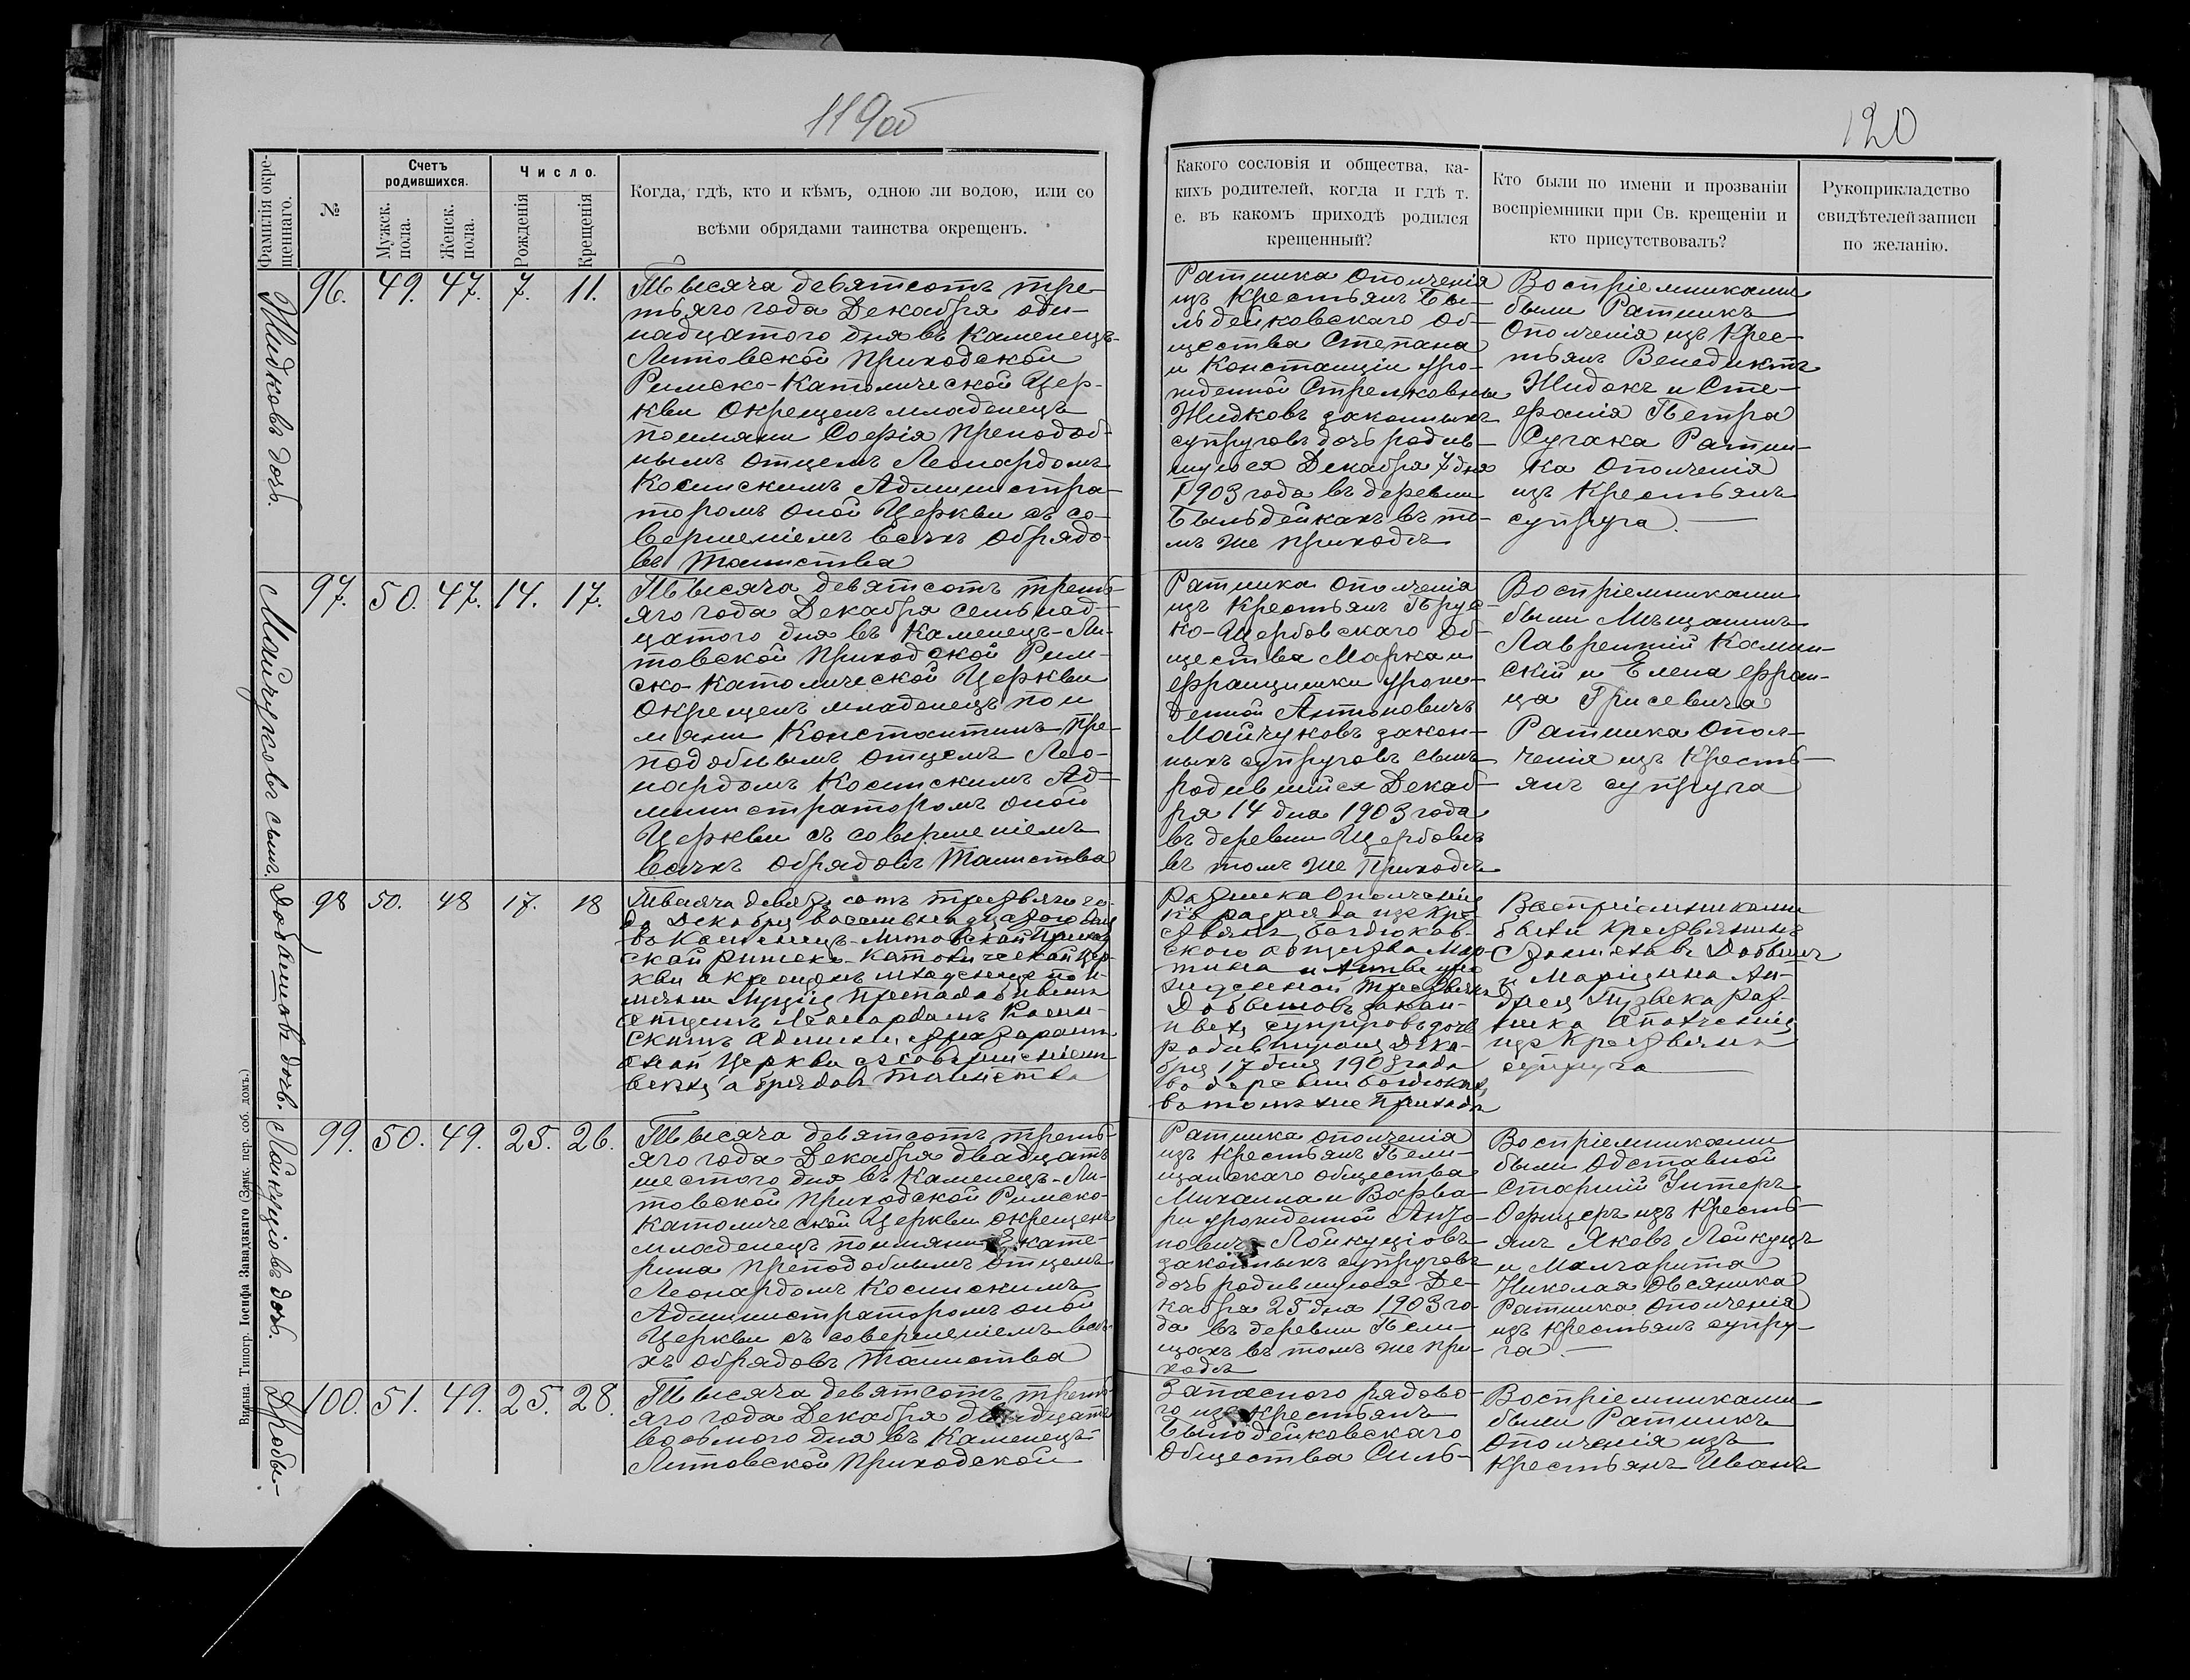 119об
120
Фамилія окре-
щеннаго.
№
Счетъ
родившихся.
Мужск.
пола.
Женск.
пола.
Число.
Рожденія
Крещенія
Когда, гдѣ, кто и кѣмъ, одною ли водою, или со
всѣми обрядами таинства окрещенъ.
Какого сословія и общества, ка-
кихъ родителей, когда и гдѣ т.
е. въ какомъ приходѣ родился
крещенный?
Кто были по имени и прозваніи
воспріемники при Св. крещеніи и
кто присутствовалъ?
Рукоприкладство
свидѣтелей записи
по желанію.
Жидковъ дочь.
96. 49. 47. 7. 11.
Тысяча девятсотъ тре-
тьяго года Декабря оди-
надцатого дня въ Каменецъ-
Литовской приходской
Римско-Католической Цер-
кви Окрещенъ младенецъ
поимяни Софія преподоб-
нымъ Отцемъ Леонардомъ
Косинскимъ Администра-
торомъ оной Церкви съ со-
вершеніемъ всѣхъ Обрядо-
въ Таинства
Ратника Ополченія
изъ Крестьянъ Бы-
льдейковскаго Об-
щества Степана
и Констанціи уро-
жденной Стрелковны
Жидковъ законныхъ
супруговъ дочь родив-
шуюся Декабря 7 дня
1903 года въ деревни
Быльдейкахъ въ то-
мъ же приходѣ
Воспріемниками
были Ратникъ
Ополченія изъ Крес-
тьянъ Венедиктъ
Жидокъ и Сте-
фанія Петра
Сугака Ратни-
ка Ополченія
изъ Крестьянъ
супруга.
Мойчуковъ сынъ.
97. 50. 47. 14. 17.
Тысяча девятсотъ треть-
яго года Декабря семьнад-
цатого дня въ Каменецъ-Ли-
товской приходской Рим-
ско-Католической Церкви
Окрещенъ младенецъ пои
мяни Константинъ Пре-
подобнымъ Отцемъ Лео-
нардомъ Косинскимъ Ад-
министраторомъ оной
Церкви съ совершеніемъ
всѣхъ Обрядовъ Таинства
Ратника Ополченія
изъ Крестьянъ Прус-
ко-Щербовскаго Об-
щества Марка и
Францишки урож-
денной Антоновичъ
Мойчуковъ закон-
ныхъ супруговъ сынъ
родившийся Декаб-
ря 14 дня 1903 года
въ деревни Щербовѣ
въ томъ же Приходѣ
Воспріемниками
были Мѣщанинъ
Лаврентій Камин-
скій и Елена Фран-
ца Грисевича
Ратника Опол-
ченія изъ Кресть-
янъ супруга
Добышовъ дочь.
98 50. 48 17. 18
Тысяча девятсотъ третьяго го-
да Декабря восемьнадцатого дня
въ Каменецъ-Литовской приход
ской Римско-Католической Цер
кви окрещенъ младенецъ по и-
мяни преподобнымъ
отцемъ Леонардомъ Косин-
скимъ Администраторомъ
оной Церкви съ совершеніемъ
всехъ обрядовъ таинства
Ратника Ополченія
разряда изъ Кре-
стьянъ
скаго общества Мар-
тина и уро-
жденной
Добышовъ закон-
ныхъ супруговъ дочь
родившуюся Дека-
бря 17 дня 1903 года
въ деревни
въ томъ же Приходѣ
Воспріемниками
были Крестьянинъ
Добышъ
и Марцина Ан-
дрея Рат-
ника Ополченія
изъ Крестьянъ
супруга
Лойкуціовъ дочь.
99. 50. 49. 25. 26.
Тысяча девятсотъ треть-
яго года Декабря двадцать
шестого дня въ Каменецъ-Ли-
товской приходской Римско-
Католической Церкви окрещенъ
младенецъ поимяни Екате-
рина преподобнымъ Отцемъ
Леонардомъ Косинскимъ
Администраторомъ оной
Церкви съ совершеніемъ всѣ-
хъ обрядовъ Таинства
Ратника ополченія
изъ крестьянъ Пели-
щанскаго общества
Михаила и Варва-
ри урожденной Анто-
новичъ Лойкуціовъ
законныхъ супруговъ
дочь родившуюся Де-
кабря 25 дня 1903 го-
да въ деревни Пели-
щахъ въ томъ же При-
ходѣ
Воспріемниками
были Одставной
Старшій Унтеръ
Офицеръ изъ Кресть-
янъ Яковъ Лойкуцъ
и Малгарита
Николая Овсяника
Ратника Ополченія
изъ крестьянъ супру-
га.
Дробы-
100. 51. 49. 25. 28.
Тысяча девятсотъ треть-
яго года Декабря двадцать
восьмого дня въ Каменецъ-
Литовской приходской
Запасного рядово-
го изъ крестьянъ
Былодейковскаго
Общества Силь-
Воспріемниками
были Ратникъ
Ополченія изъ
крестьянъ Иванъ
Вильна. Типогр. Іосифа Завадзкаго (Замк. пер. соб. домъ.)